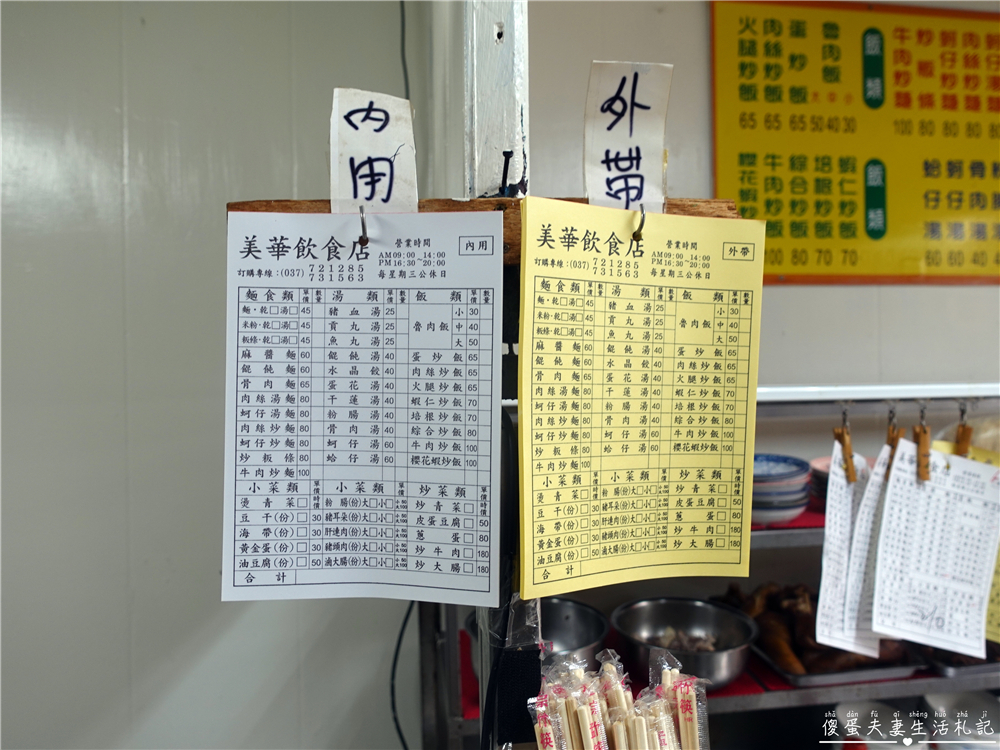 內用
外帶
美華飲食店
營業時間
AM 09:00~14:00
PM 16:30~20:00
內用
訂購專線:(037) 721285
731563
每星期三公休日
麵食類 單價 數量 湯類 單價 數量 飯類 單價 數量
麵·乾□湯□ 45 豬血湯 25 魯肉飯 小 30
米粉·乾□湯□ 45 貢丸湯 25 中 40
粄條·乾□湯□ 45 魚丸湯 25 大 50
麻醬麵 60 餛飩湯 40 蛋炒飯 65
餛飩麵 60 水晶餃 40 肉絲炒飯 65
骨肉麵 60 蛋花湯 40 火腿炒飯 65
肉絲湯麵 80 干蓮湯 40 蝦仁炒飯 70
蚵仔湯麵 80 粉腸湯 40 培根炒飯 70
肉絲炒麵 80 骨肉湯 40 綜合炒飯 80
蚵仔炒麵 80 蚵仔湯 60 牛肉炒飯 100
炒粄條 80 蛤仔湯 60 櫻花蝦炒飯 100
牛肉炒麵 100
小菜類 單價 小菜類 單價 炒菜類 單價
燙青菜□ 時價 粉腸(份)大□小□ 小50大100 炒青菜□ 時價
豆干(份)□ 30 豬耳朵(份)大□小□ 小50大100 皮蛋豆腐□ 50
海帶(份)□ 30 肝連肉(份)大□小□ 小50大100 蔥蛋□ 80
黃金蛋(份)□ 30 豬頭肉(份)大□小□ 小50大100 炒牛肉□ 180
油豆腐(份)□ 50 滷大腸(份)大□小□ 小50大100 炒大腸□ 180
合計
美華飲食店
營業時間
AM 09:00~14:00
PM 16:30~20:00
外帶
訂購專線:(037) 721285
731563
每星期三公休日
麵食類 單價 數量 湯類 單價 數量 飯類 單價 數量
麵·乾□湯□ 45 豬血湯 25 魯肉飯 小 30
米粉·乾□湯□ 45 貢丸湯 25 中 40
粄條·乾□湯□ 45 魚丸湯 25 大 50
麻醬麵 60 餛飩湯 40 蛋炒飯 65
餛飩麵 60 水晶餃 40 肉絲炒飯 65
骨肉麵 60 蛋花湯 40 火腿炒飯 65
肉絲湯麵 80 干蓮湯 40 蝦仁炒飯 70
蚵仔湯麵 80 粉腸湯 40 培根炒飯 70
肉絲炒麵 80 骨肉湯 40 綜合炒飯 80
蚵仔炒麵 80 蚵仔湯 60 牛肉炒飯 100
炒粄條 80 蛤仔湯 60 櫻花蝦炒飯 100
牛肉炒麵 100
小菜類 單價 小菜類 單價 炒菜類 單價
燙青菜□ 時價 粉腸(份)大□小□ 小50大100 炒青菜□ 時價
豆干(份)□ 30 豬耳朵(份)大□小□ 小50大100 皮蛋豆腐□ 50
海帶(份)□ 30 肝連肉(份)大□小□ 小50大100 蔥蛋□ 80
黃金蛋(份)□ 30 豬頭肉(份)大□小□ 小50大100 炒牛肉□ 180
油豆腐(份)□ 50 滷大腸(份)大□小□ 小50大100 炒大腸□ 180
合計
飯類
魯肉飯 大中小 50 40 30
蛋炒飯 65
肉絲炒飯 65
火腿炒飯 65
牛肉炒麵 100
炒粄條 80
飯類
蝦仁炒飯 70
培根炒飯 70
綜合炒飯 80
牛肉炒飯
櫻花蝦炒飯 100
蛤仔湯 60
蚵仔湯 60
骨肉湯 40
美華飲食店
shǎ dàn fū qī shēng huó zhá jì
傻蛋夫妻生活札記